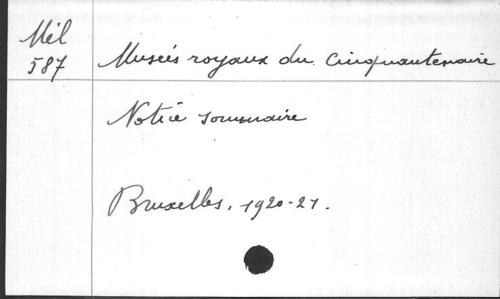 Mél
587
Musées royaux du Cinquantenaire
Notice sommaire
Bruxelles, 1920-21.